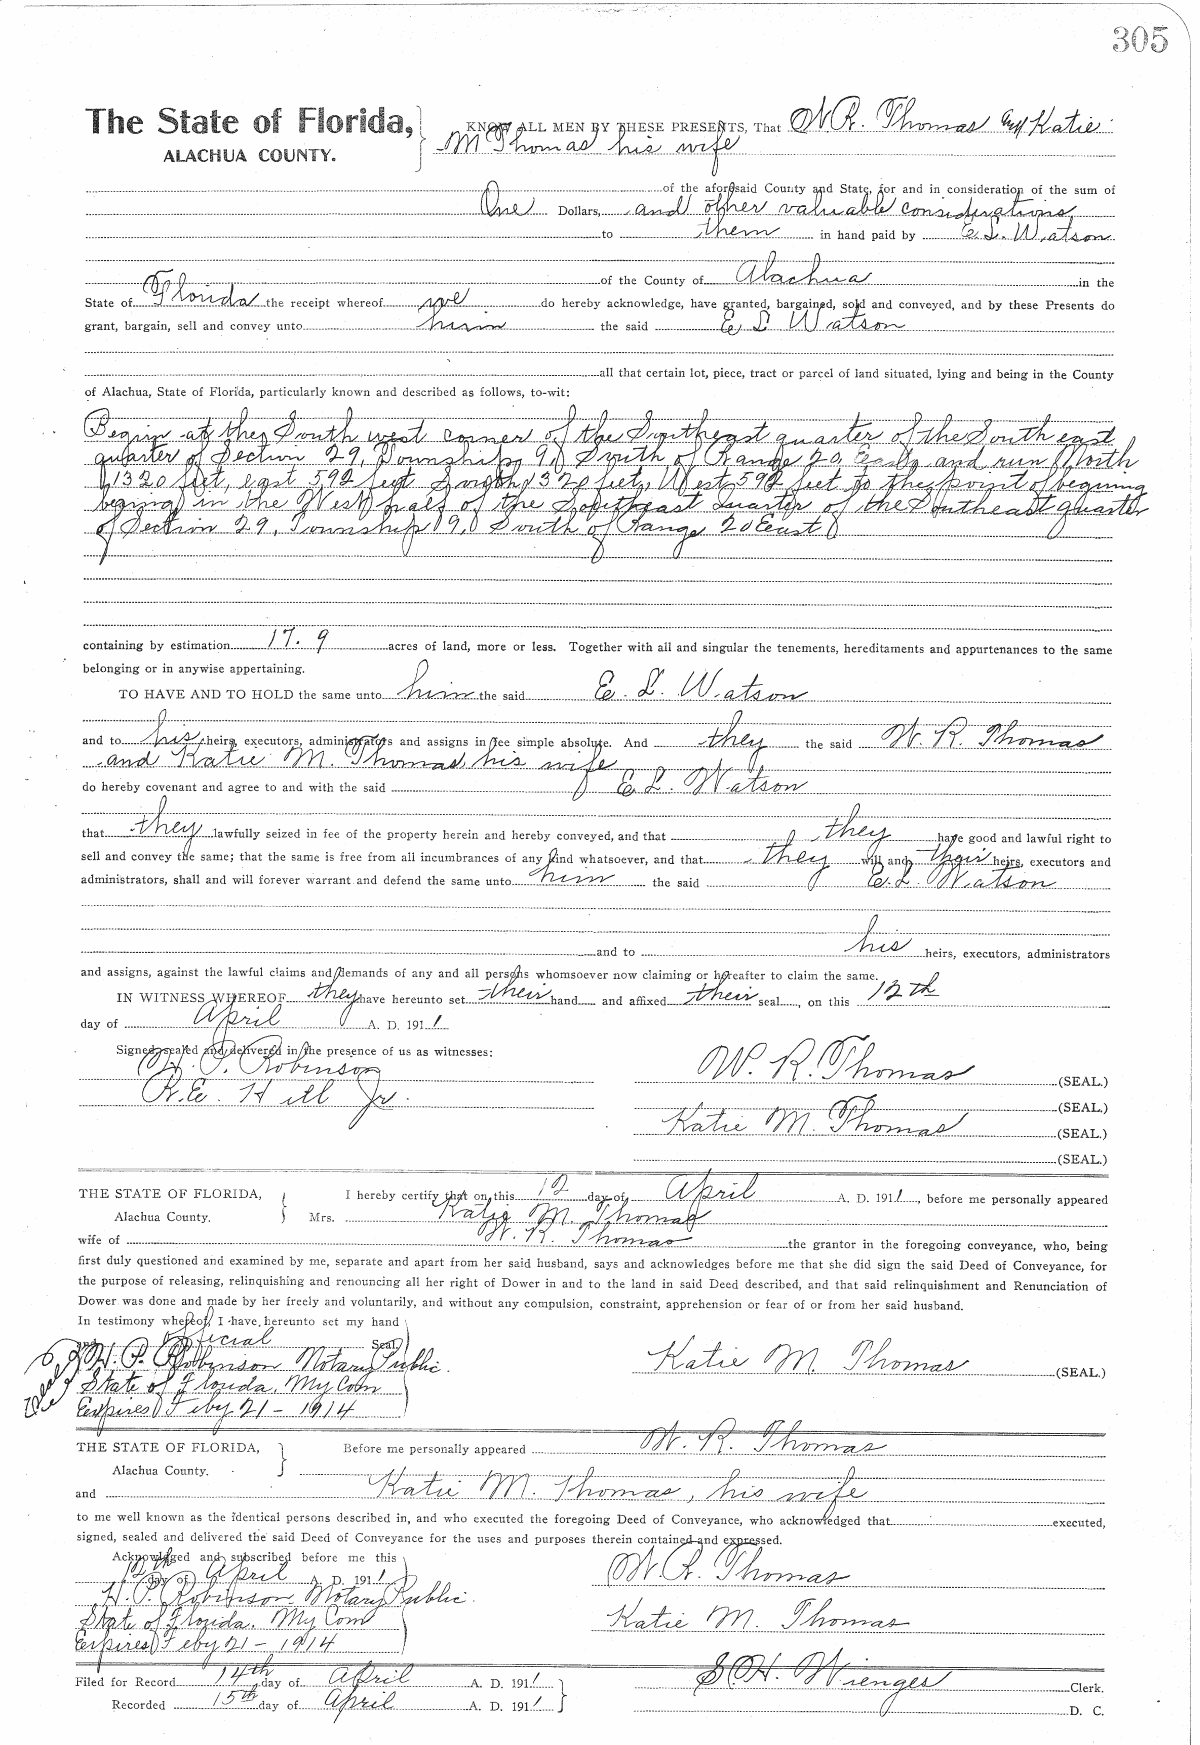 305
The State of Florida,
ALACHUA COUNTY.
KNOW ALL MEN BY THESE PRESENTS, That W. R. Thomas and Katie
M Thomas his wife
of the aforesaid County and State, for and in consideration of the sum of
One Dollars, and other valuable considerations
to them in hand paid by E. L. Watson
of the County of Alachua in the
State of Florida the receipt whereof we do hereby acknowledge, have granted, bargained, sold and conveyed, and by these Presents do
grant, bargain, sell and convey unto him the said E L Watson
all that certain lot, piece, tract or parcel of land situated, lying and being in the County
of Alachua, State of Florida, particularly known and described as follows, to-wit:
Begin at the South west corner of the Southeast quarter of the South east
quarter of Section 29, Township 9, South of Range 20, East, and run North
1320 feet, east 592 feet South 1320 feet, West 592 feet to the point of begining
begining in the West half of the Southeast quarter of the Southeast quarter
of Section 29, Township 9, South of Range 20 East
containing by estimation 17.9 acres of land, more or less. Together with all and singular the tenements, hereditaments and appurtenances to the same
belonging or in anywise appertaining.
TO HAVE AND TO HOLD the same unto him the said E. L. Watson
and to his heirs, executors, administrators and assigns in fee simple absolute. And they the said W. R. Thomas
and Katie M. Thomas, his wife
do hereby covenant and agree to and with the said E L. Watson
that they lawfully seized in fee of the property herein and hereby conveyed, and that they have good and lawful right to
sell and convey the same; that the same is free from all incumbrances of any kind whatsoever, and that they will and their heirs, executors and
administrators, shall and will forever warrant and defend the same unto him the said E. L. Watson
and to his heirs, executors, administrators
and assigns, against the lawful claims and demands of any and all persons whomsoever now claiming or hereafter to claim the same.
IN WITNESS WHEREOF they have hereunto set their hand and affixed their seal, on this 12th
day of April A. D. 1911
Signed, sealed and delivered in the presence of us as witnesses:
H. P. Robinson
R. E. Hill Jr.
W. R. Thomas (SEAL.)
(SEAL.)
Katie M. Thomas (SEAL.)
(SEAL.)
THE STATE OF FLORIDA,
Alachua County.
I hereby certify that on this 12 day of April A. D. 1911, before me personally appeared
Mrs. Katie M. Thomas
wife of W. R. Thomas the grantor in the foregoing conveyance, who, being
first duly questioned and examined by me, separate and apart from her said husband, says and acknowledges before me that she did sign the said Deed of Conveyance, for
the purpose of releasing, relinquishing and renouncing all her right of Dower in and to the land in said Deed described, and that said relinquishment and Renunciation of
Dower was done and made by her freely and voluntarily, and without any compulsion, constraint, apprehension or fear of or from her said husband.
In testimony whereof, I have hereunto set my hand
and official Seal
H. P. Robinson Notary Public.
State of Florida, My Com
Expires Feby 21 - 1914
Katie M. Thomas (SEAL.)
THE STATE OF FLORIDA,
Alachua County.
Before me personally appeared W. R. Thomas
and Katie M. Thomas, his wife
to me well known as the identical persons described in, and who executed the foregoing Deed of Conveyance, who acknowledged that executed,
signed, sealed and delivered the said Deed of Conveyance for the uses and purposes therein contained and expressed.
Acknowledged and subscribed before me this
12th day of April A. D. 1911
H. P. Robinson Notary Public.
State of Florida. My Com
Expires Feby 21 - 1914
W. R. Thomas
Katie M. Thomas
Filed for Record 14th day of April A. D. 1911
Recorded 15th day of April A. D. 1911
S. H. Wienges Clerk.
D. C.